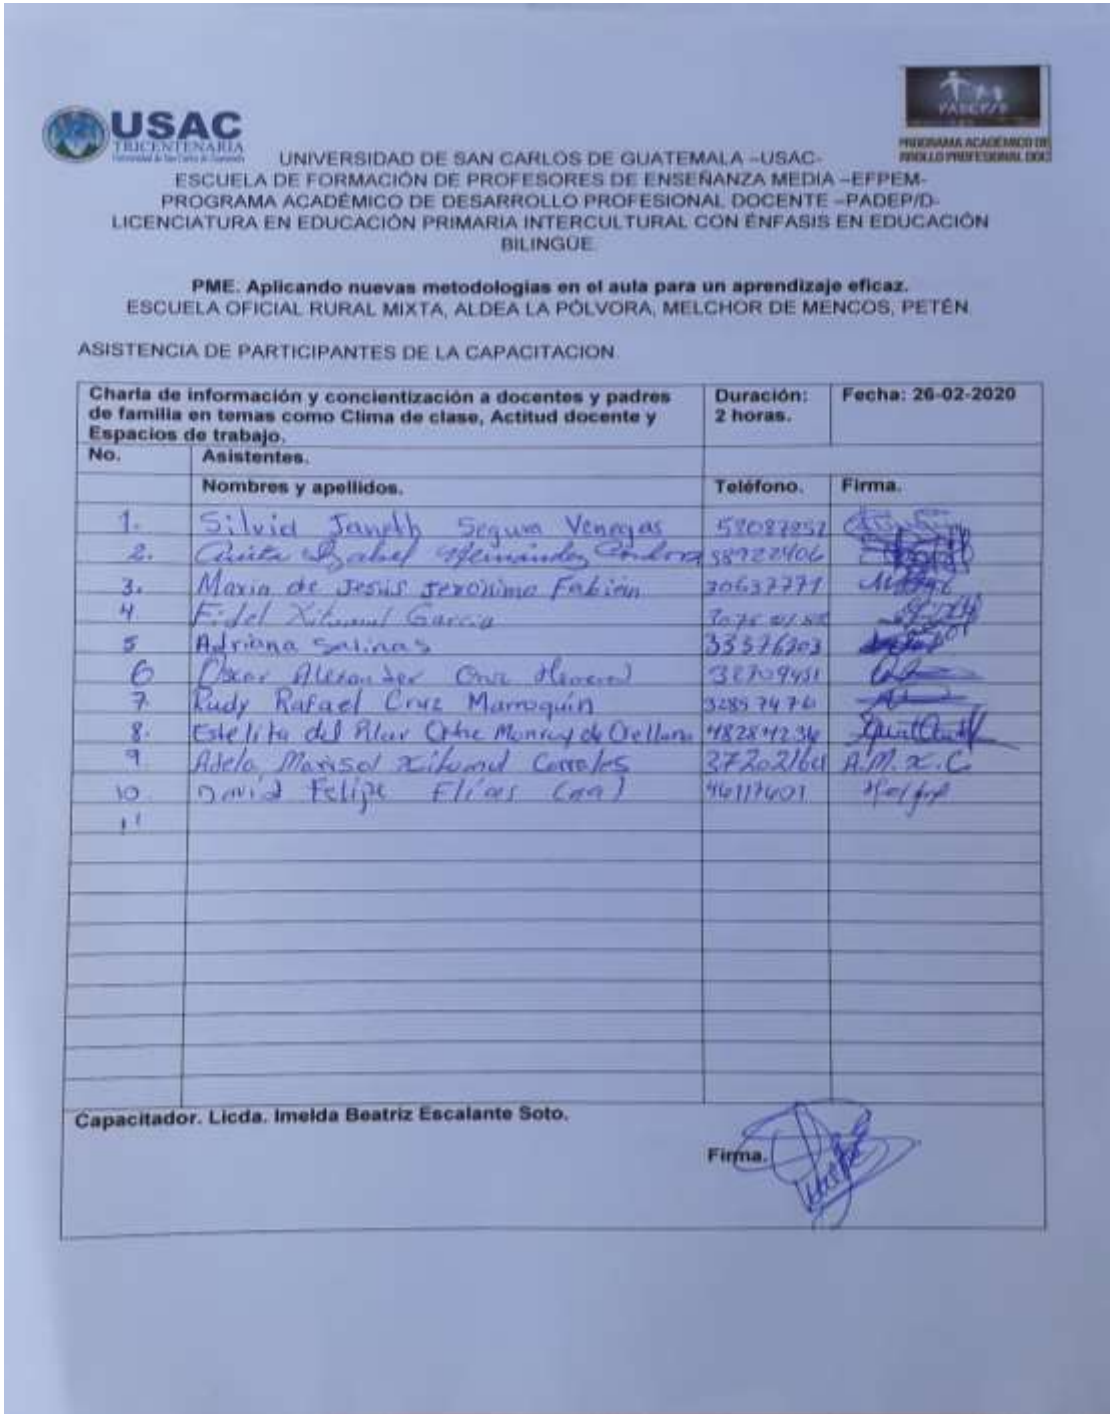 USAC
TRICENTENARIA
Universidad de San Carlos de Guatemala
PADEP/D
PROGRAMA ACADÉMICO DE
RROLLO PROFESIONAL DOC
UNIVERSIDAD DE SAN CARLOS DE GUATEMALA –USAC-
ESCUELA DE FORMACIÓN DE PROFESORES DE ENSEÑANZA MEDIA –EFPEM-
PROGRAMA ACADÉMICO DE DESARROLLO PROFESIONAL DOCENTE –PADEP/D-
LICENCIATURA EN EDUCACIÓN PRIMARIA INTERCULTURAL CON ÉNFASIS EN EDUCACIÓN
BILINGÜE.
PME. Aplicando nuevas metodologías en el aula para un aprendizaje eficaz.
ESCUELA OFICIAL RURAL MIXTA, ALDEA LA PÓLVORA, MELCHOR DE MENCOS, PETÉN.
ASISTENCIA DE PARTICIPANTES DE LA CAPACITACION.
Charla de información y concientización a docentes y padres
de familia en temas como Clima de clase, Actitud docente y
Espacios de trabajo.
Duración:
2 horas.
Fecha: 26-02-2020
No. Asistentes.
Nombres y apellidos. Teléfono. Firma.
1. Silvia Janeth Segura Venegas
2. Hernández 58922406
3. Maria de Jesús Jerónimo Fabián 30637771
4 Fidel Xitumul Garcia
5 Adriana Salinas 33576303
6 Oscar Alexander Cruz
7. Rudy Rafael Cruz Marroquín 32857476
8. Estelita del Pilar Monroy de Orellana 48284236
9 Adela Marisol Xitumul Corrales A.M.X.C.
10. David Felipe Elías Caal 46117601
11
Capacitador. Licda. Imelda Beatriz Escalante Soto.
Firma.